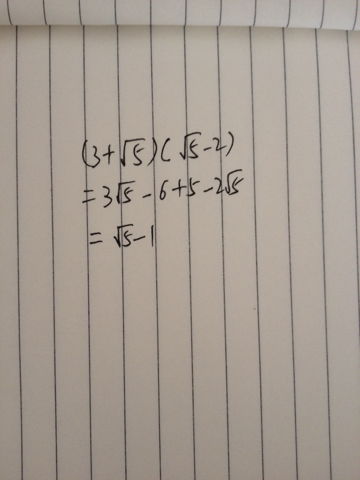 (3+√5)(√5-2)
=3√5-6+5-2√5
=√5-1